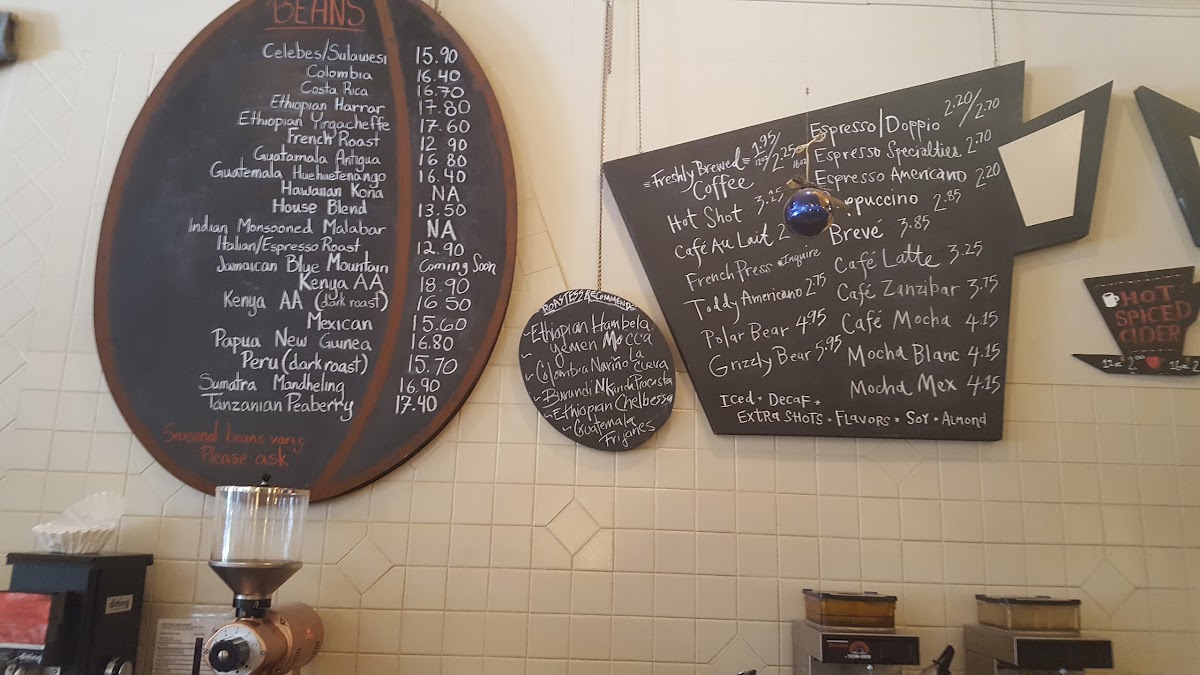 BEANS
Celebes/Sulawesi 15.90
Colombia 16.40
Costa Rica 16.70
Ethiopian Harrar 17.80
Ethiopian Yirgacheffe 17.60
French Roast 12 90
Guatamala Antigua 16 80
Guatemala Huehuetenango 16.40
Hawaiian Kona NA
House Blend 13.50
Indian Monsooned Malabar NA
Italian/Espresso Roast 12.90
Jamaican Blue Mountain Coming Soon
Kenya AA 18.90
Kenya AA (dark roast) 16.50
Mexican 15.60
Papua New Guinea 16.80
Peru (dark roast) 15.70
Sumatra Mandheling 16.90
Tanzanian Peaberry 17.40
Seasonal beans vary
Please ask
ROASTERS RECOMMENDS
Ethiopian Hambela
Yemen Mocca
Colombia Nariño La
Cueva
Burundi
Ethiopian Chelbessa
Guatemala
Frijanes
Freshly Brewed 1.95/2.25
12oz 16oz
Coffee
Hot Shot 3.25
Café Au Lait 2
French Press *Inquire
Toddy Americano 2.75
Polar Bear 4.95
Grizzly Bear 5.95
Espresso/Doppio 2.20/2.70
Espresso Specialties 2.70
Espresso Americano 2.20
ppuccino 2.85
Brevé 3.85
Café Latte 3.25
Café Zanzibar 3.75
Café Mocha 4.15
Mocha Blanc 4.15
Mocha Mex 4.15
Iced * Decaf *
Extra Shots * Flavors * Soy * Almond
HOT
SPICED
CIDER
12oz 2.00 16oz 2
ditting
ditting